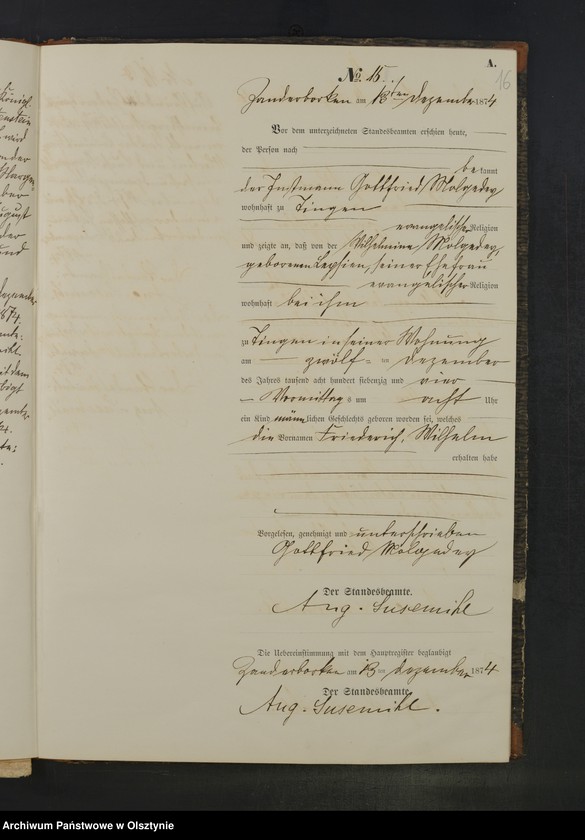 A.
16
№ 15.
Zanderborken am 13ten Dezember 1874
Vor dem unterzeichneten Standesbeamten erschien heute,
der Person nach
bekannt
der Instmann Gottfried Molgedey
wohnhaft zu Tingen
evangelischer Religion
und zeigte an, daß von der Wilhelmine Molgedey,
geborenen Lepsien, seiner Ehefrau
evangelischer Religion
wohnhaft bei ihm
zu Tingen in seiner Wohnung
am zwölf ten Dezember
des Jahres tausend acht hundert siebenzig und vier
Vormittags um acht Uhr
ein Kind männlichen Geschlechts geboren worden sei, welches
die Vornamen Friederich, Wilhelm
erhalten habe
Vorgelesen, genehmigt und unterschrieben
Gottfried Molgedey
Der Standesbeamte.
Aug. Susemihl
Die Uebereinstimmung mit dem Hauptregister beglaubigt
Zanderborken am 13 ten Dezember 1874
Der Standesbeamte.
Aug. Susemihl.
Archiwum Państwowe w Olsztynie